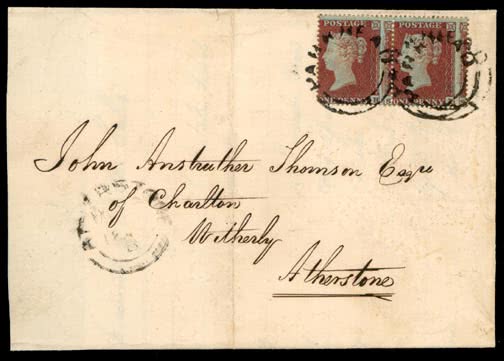 POSTAGE POSTAGE
ONE PENNY ONE PENNY
John Anstruther Thomson Esqre
of Charlton
Witherly
Atherstone